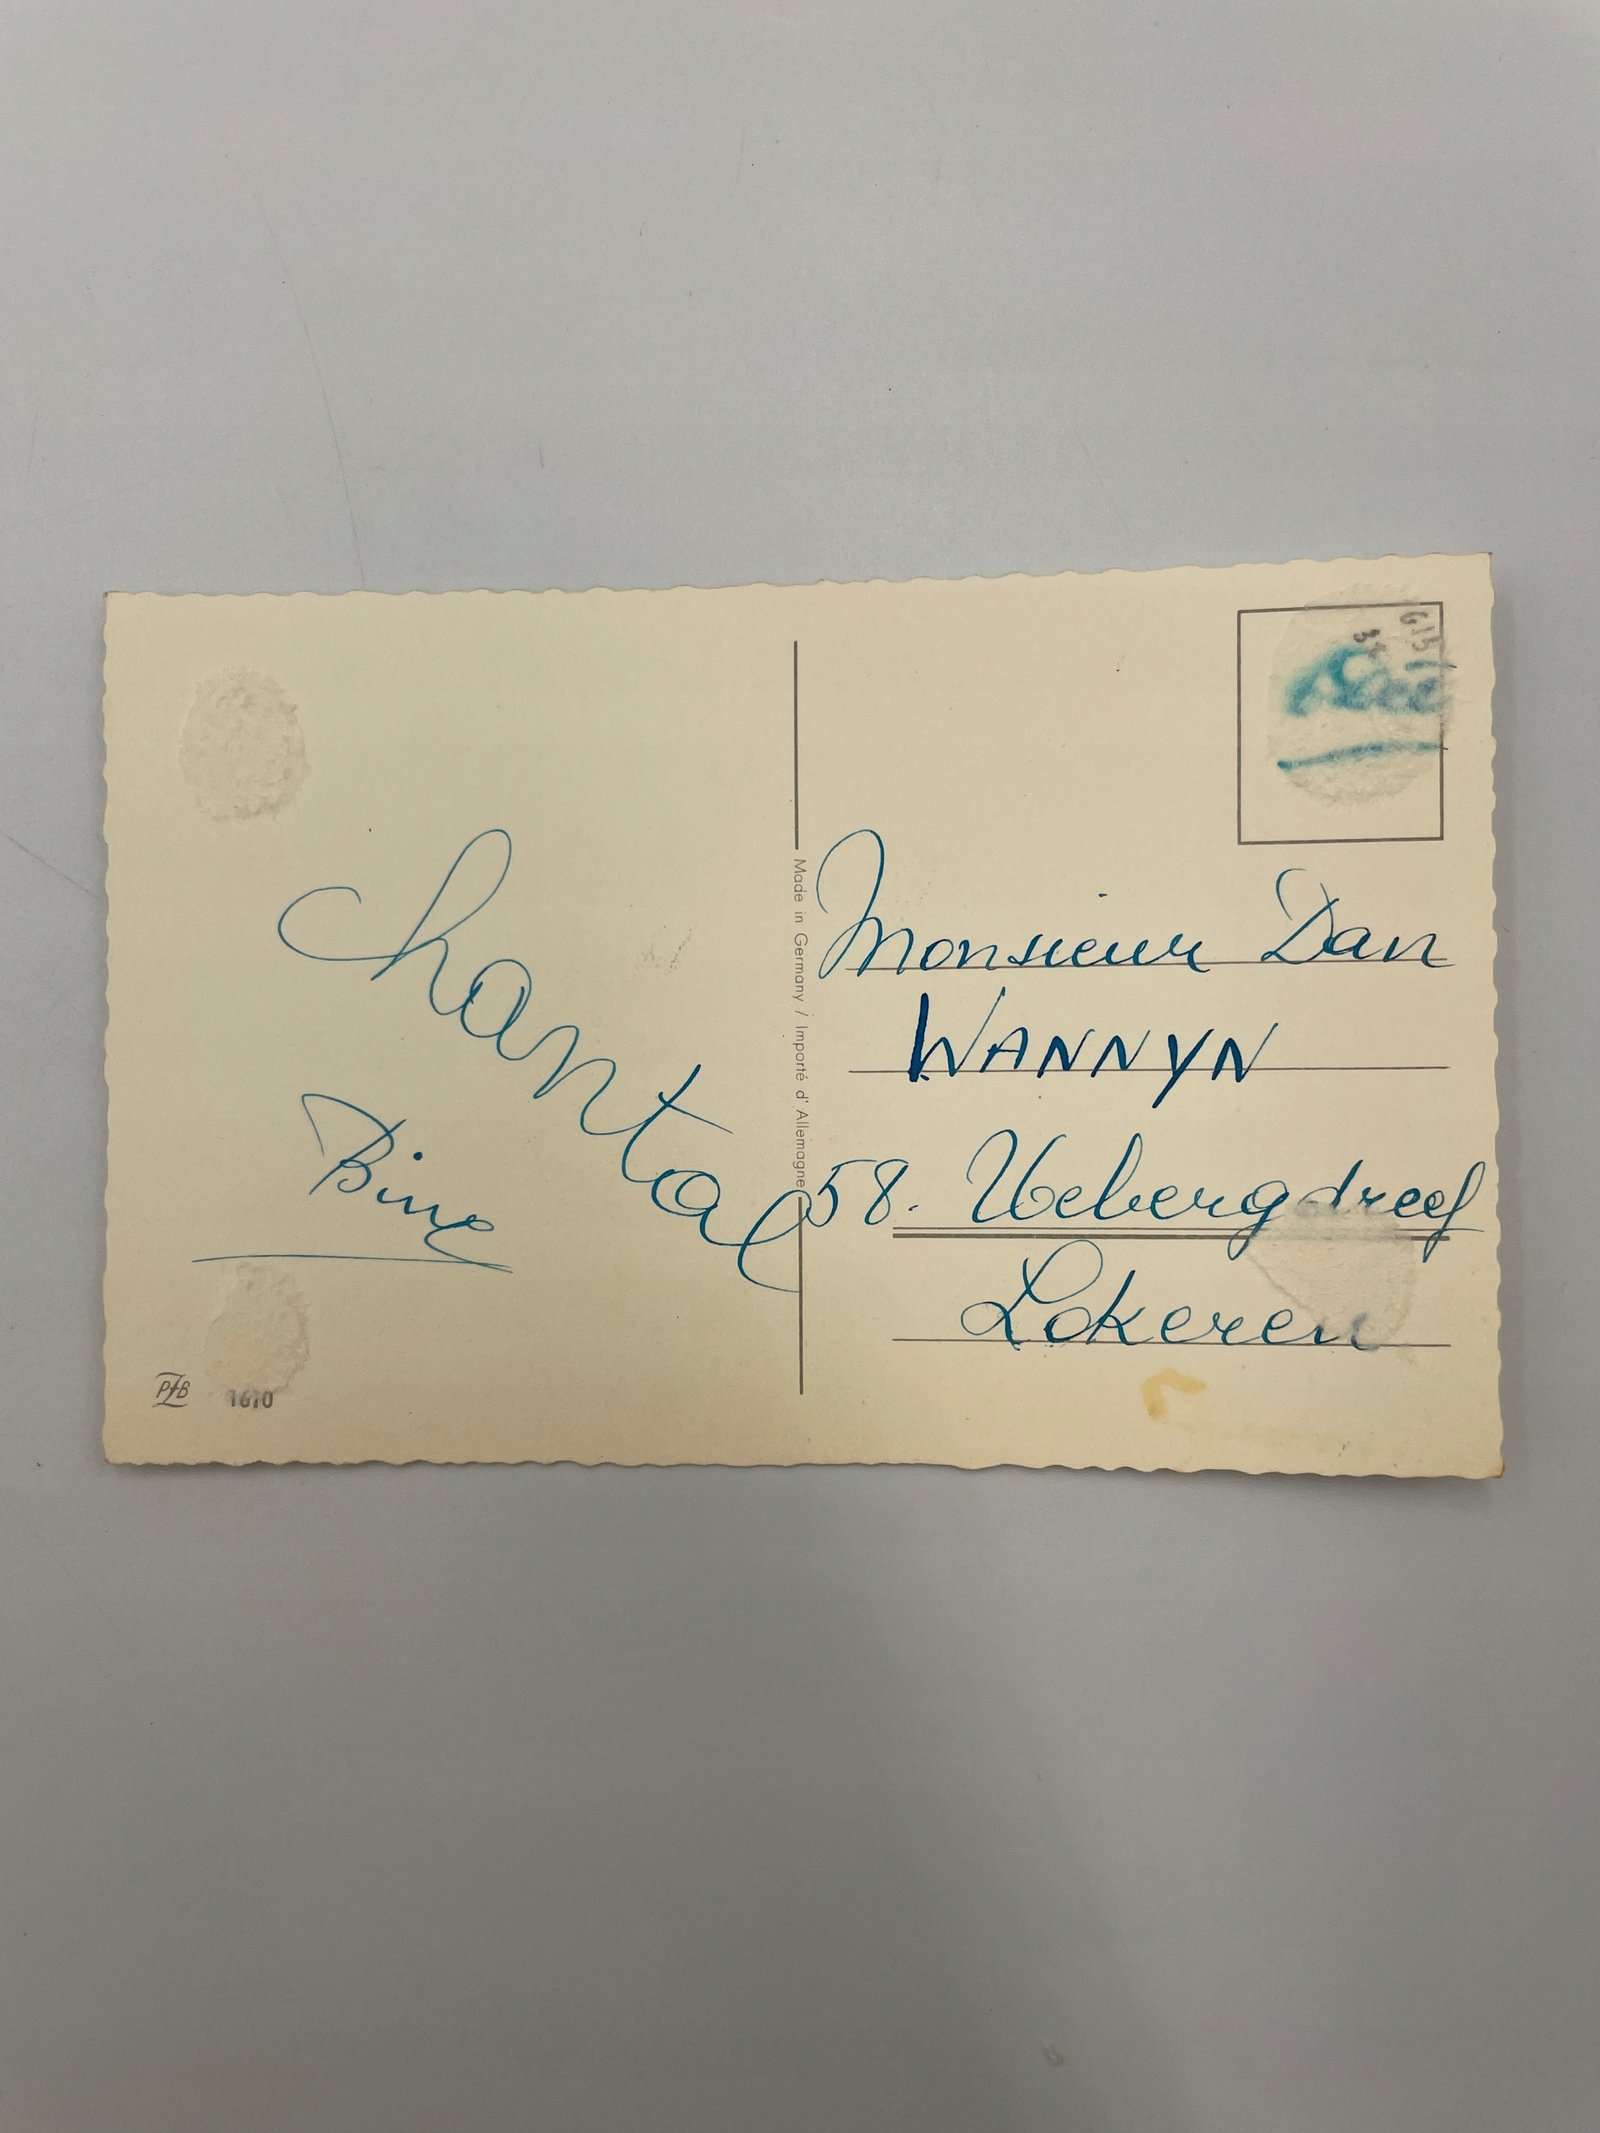 Chantal
Bine
PFB 1610
Made in Germany / Importé d'Allemagne
Monsieur Dan
WANNYN
58. Uebergdreef
Lokeren